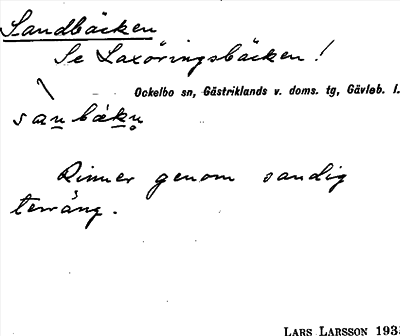 Sandbäcken
Se Laxöringsbäcken!
Ockelbo sn, Gästriklands v. doms. tg, Gävleb. l.
san bäkn
Rinner genom sandig
terräng.
LARS LARSSON 193